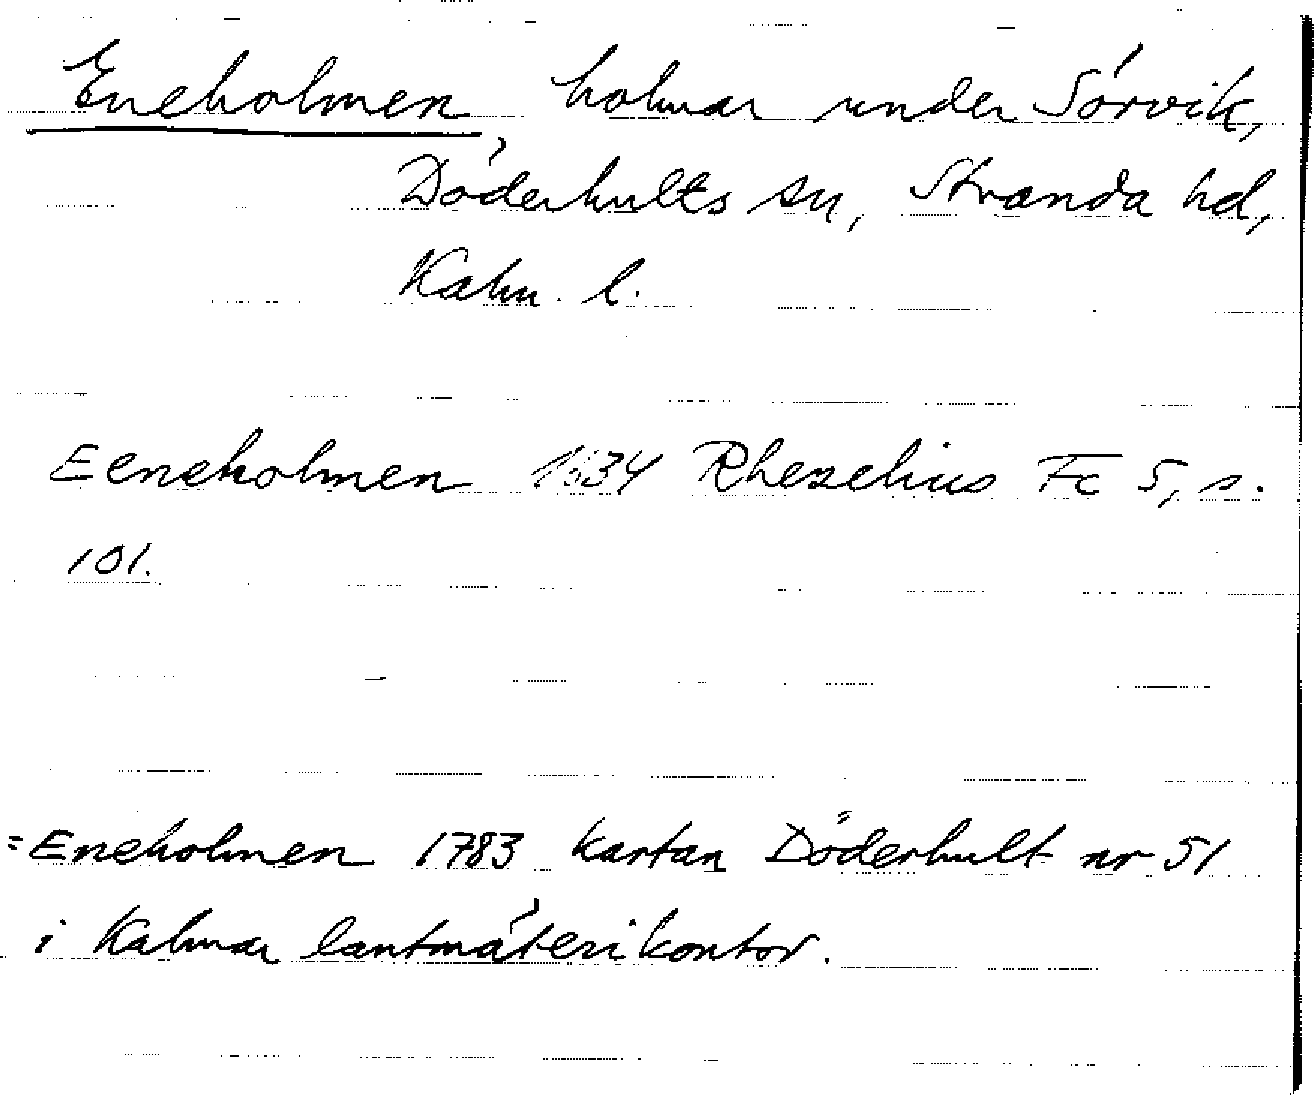 Eneholmen, holmar under Sörvik,
Döderhults sn, Stranda hd,
Kalm. l.
Eeneholmen 1634 Rhezelius Fc 5, s.
101.
=Eneholmen 1783 kartan Döderhult nr 51
i Kalmar lantmäterikontor.